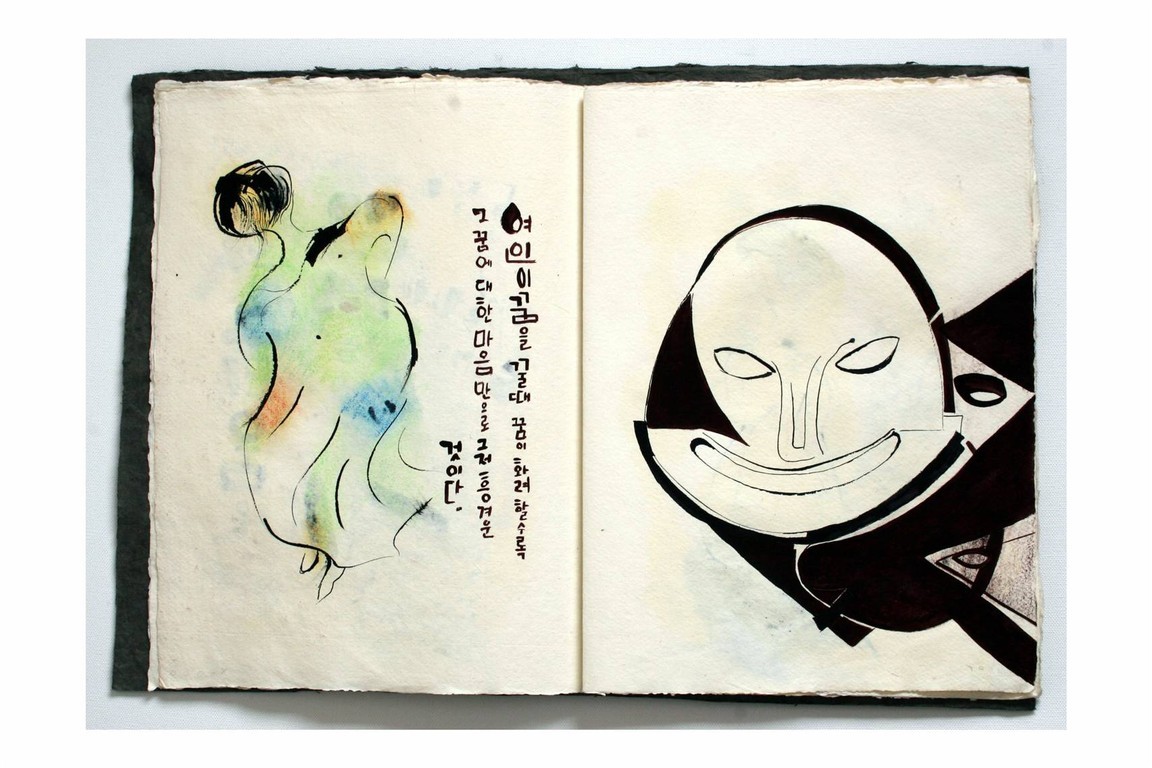 여인이 꿈을 꿀때 꿈이 화려할수록
그 꿈에 대한 마음만으로 그저 흥겨운
것이다.